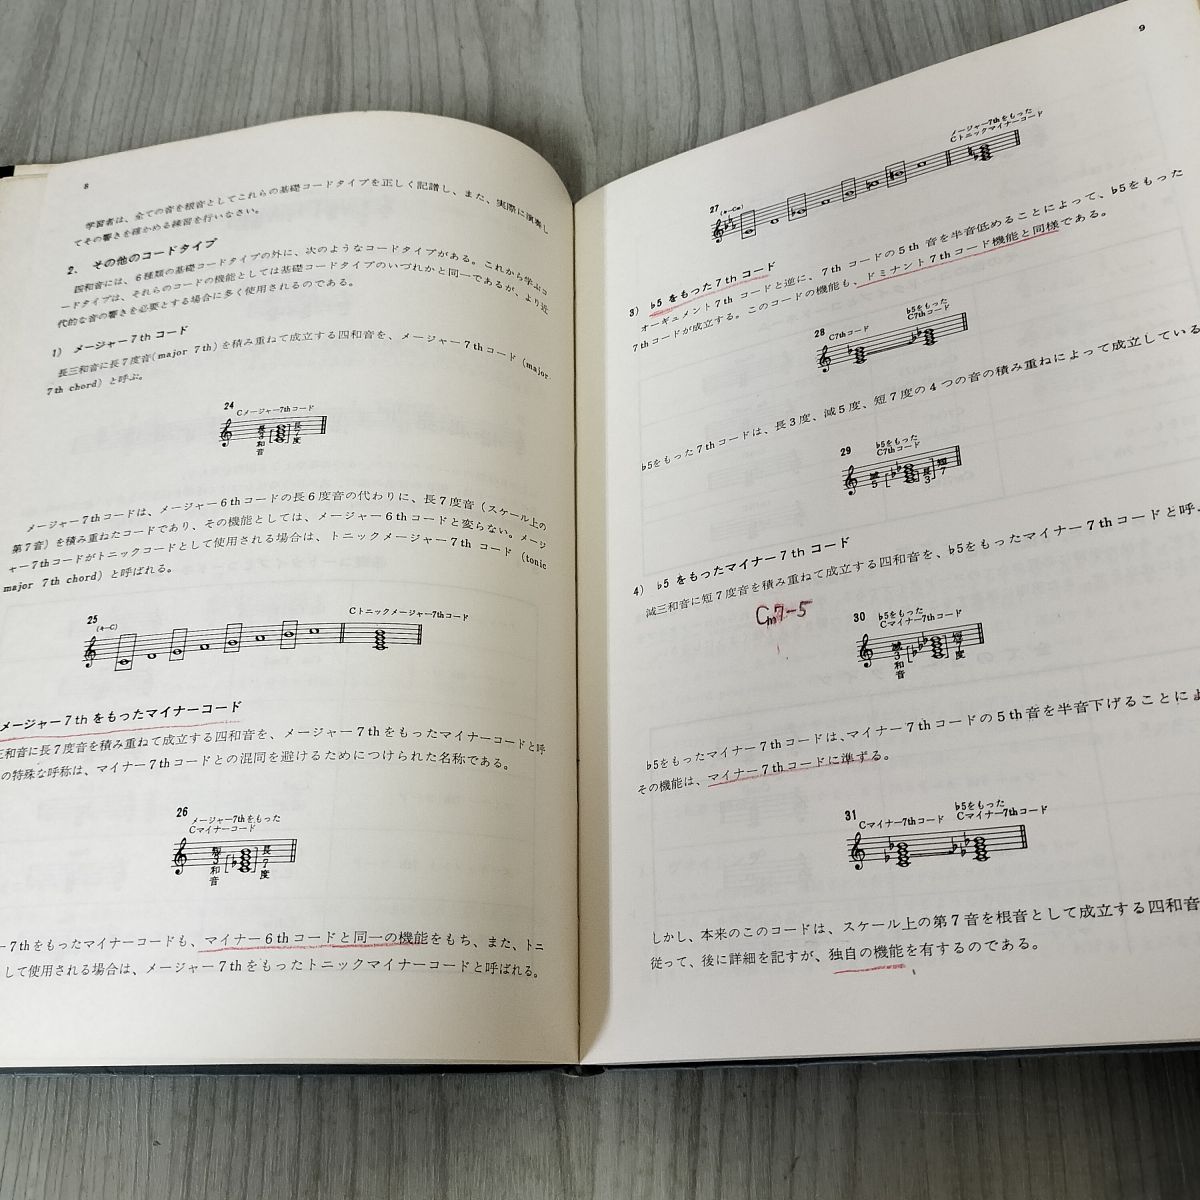 8
学習者は、全ての音を根音としてこれらの基礎コードタイプを正しく記譜し、また、実際に演奏し
てその響きを確かめる練習を行いなさい。
2. その他のコードタイプ
四和音には、6種類の基礎コードタイプの外に、次のようなコードタイプがある。これから学ぶコ
ードタイプは、それらのコードの機能としては基礎コードタイプのいづれかと同一であるが、より近
代的な音の響きを必要とする場合に多く使用されるのである。
1) メージャー7thコード
長三和音に長7度音(major 7th)を積み重ねて成立する四和音を、メージャー7thコード(major
7th chord)と呼ぶ。
24
Cメージャー7thコード
長3和音
長7度
メージャー7thコードは、メージャー6thコードの長6度音の代わりに、長7度音(スケール上の
第7音)を積み重ねたコードであり、その機能としては、メージャー6thコードと変らない。メージ
ャー7thコードがトニックコードとして使用される場合は、トニックメージャー7th コード(tonic
major 7th chord)と呼ばれる。
25
Cトニックメージャー7thコード
メージャー7thをもったマイナーコード
三和音に長7度音を積み重ねて成立する四和音を、メージャー7thをもったマイナーコードと呼
の特殊な呼称は、マイナー7thコードとの混同を避けるためにつけられた名称である。
26
メージャー7thをもった
Cマイナーコード
短3和音
長7度
ー7thをもったマイナーコードも、マイナー6thコードと同一の機能をもち、また、トニ
して使用される場合は、メージャー7thをもったトニックマイナーコードと呼ばれる。
9
メージャー7thをもった
Cトニックマイナーコード
27
3) ♭5をもった7thコード
オーギュメント7thコードと逆に、7thコードの5th音を半音低めることによって、♭5をもった
7thコードが成立する。このコードの機能も、ドミナント7thコード機能と同様である。
28
C7thコード
♭5をもった
C7thコード
♭5をもった7thコードは、長3度、減5度、短7度の4つの音の積み重ねによって成立している
29
♭5をもった
C7thコード
減5
長3
短7
4) ♭5をもったマイナー7thコード
減三和音に短7度音を積み重ねて成立する四和音を、♭5をもったマイナー7thコードと呼
Cm7-5
30
♭5をもった
Cマイナー7thコード
減3和音
短7度
♭5をもったマイナー7thコードは、マイナー7thコードの5th音を半音下げることによ
その機能は、マイナー7thコードに準ずる。
31
Cマイナー7thコード
♭5をもった
Cマイナー7thコード
しかし、本来のこのコードは、スケール上の第7音を根音として成立する四和音
従って、後に詳細を記すが、独自の機能を有するのである。